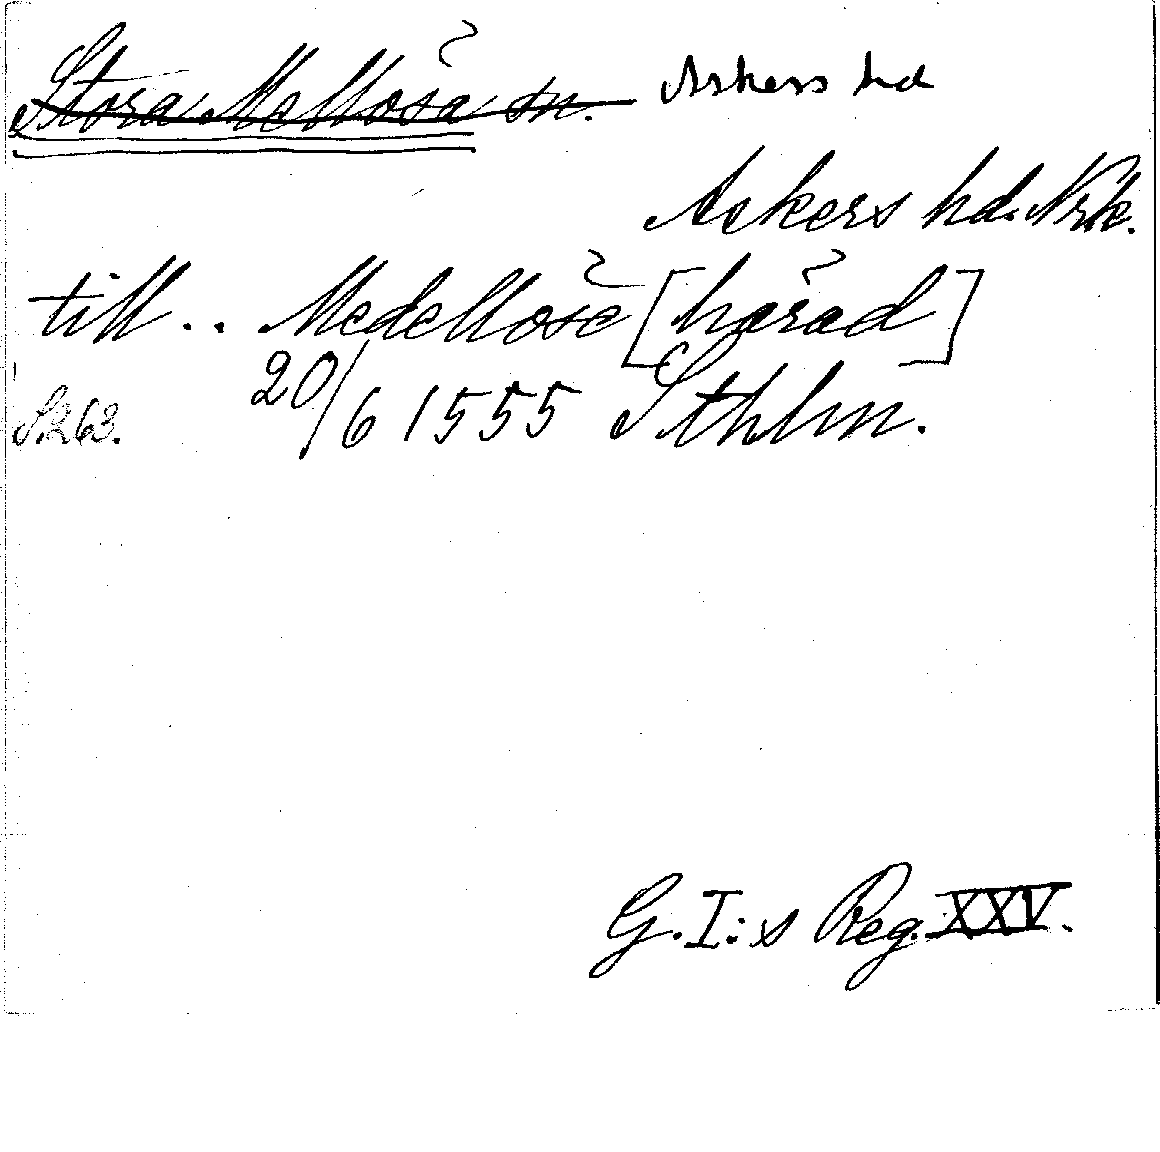 Stora Mellösa sn. Askers hd
Askers hd. Nrk.
till .. Medellöse [härad]
S. 263. 20/6 1555 Sthlm.
G. I:s Reg. XXV.